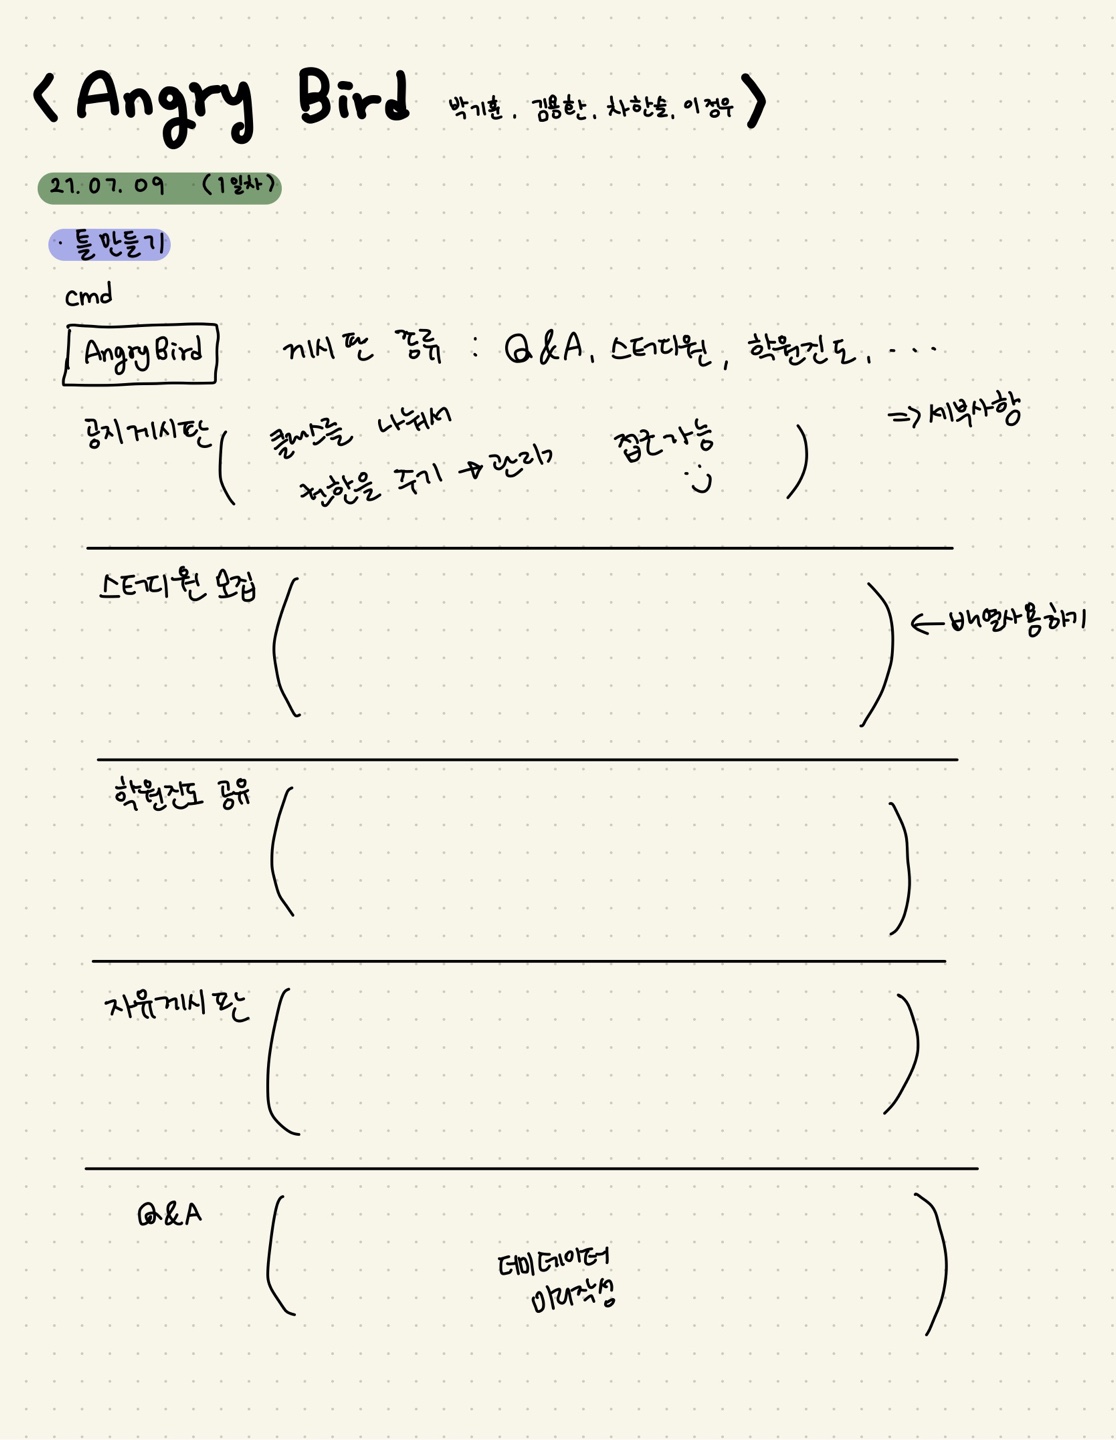 < Angry Bird 박기훈, 김용한, 차한솔, 이정우 >
21.07.09 (1일차)
· 틀 만들기
cmd
Angry Bird
게시판 종류 : Q&A, 스터디원, 학원진도, ...
=> 세부사항
공지게시판 ( 클래스를 나눠서
권한을 주기 → 관리자 접근가능 )
스터디원 모집 ( ) ← 배열사용하기
학원진도 공유 ( )
자유게시판 ( )
Q&A ( 더미데이터
미리작성 )